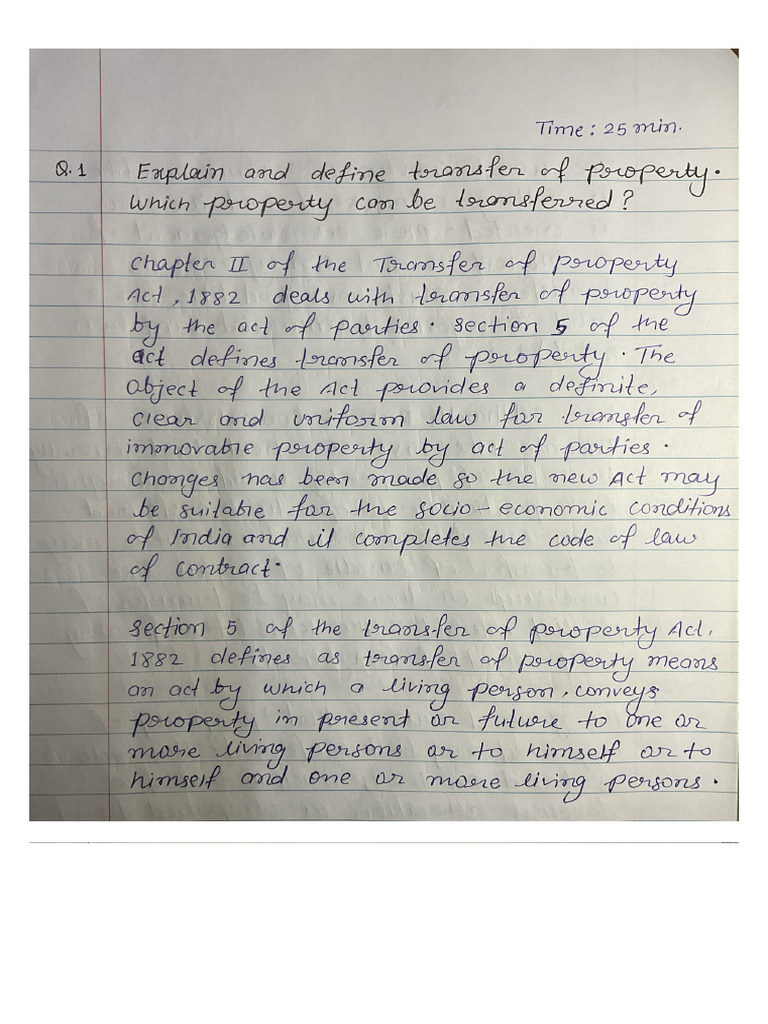 Time : 25 min.
Q.1 Explain and define transfer of property.
Which property can be transferred?
Chapter II of the Transfer of property
Act, 1882 deals with transfer of property
by the act of parties. Section 5 of the
act defines transfer of property. The
object of the Act provides a definite,
clear and uniform law for transfer of
immovable property by act of parties.
Changes has been made so the new Act may
be suitable for the socio-economic conditions
of India and it completes the code of law
of contract.
Section 5 of the transfer of property Act,
1882 defines as transfer of property means
an act by which a living person, conveys
property in present or future to one or
more living persons or to himself or to
himself and one or more living persons.